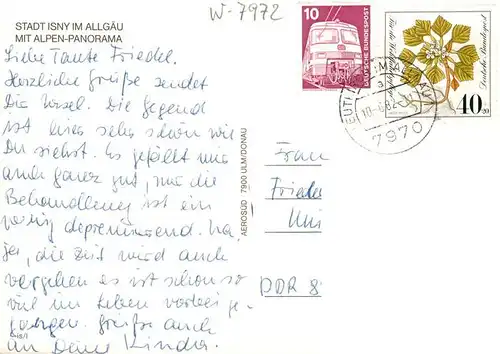 W-7972
STADT ISNY IM ALLGÄU
MIT ALPEN-PANORAMA
Liebe Tante Friedel.
Herzliche Grüße sendet
Dir Ursel. Die Gegend
ist hier sehr schön wie
Du siehst. Es gefällt mir
auch ganz gut, nur die
Behandlung ist ein
wenig deprimierend. Na,
ja, die Zeit wird auch
vergehen es ist schon so
viel im Leben vorbei ge-
gangen. Grüße auch
an Deine Kinder.
AEROSÜD 7900 ULM/DONAU
10
DEUTSCHE BUNDESPOST
Deutsche Bundespost
40
+20
7970
Frau
Friedel
DDR 8